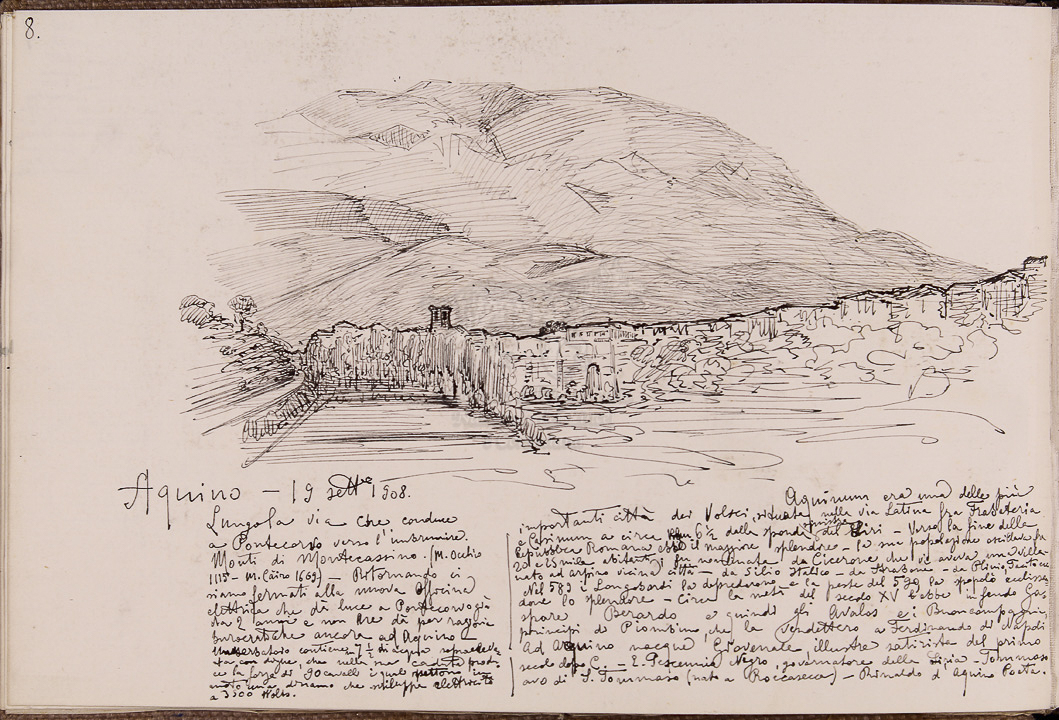 8.
Aquino - 19 sett^e 1908.
Lungo la via che conduce
a Pontecorvo verso l'imbrunire.
Monti di Montecassino. (M. Occhio
1115 - M. Cairo 1669) - Ritornando ci
siamo fermati alla nuova officina
elettrica che dà luce a Pontecorvo già
da 2 anni e non ne dà per ragioni
burocratiche ancora ad Aquino -
contiene 7 ½ di acqua
con dighe, che nella sua caduta prod-
ce la forza di 90 cavalli i quali mettono in
una dinamo che sviluppa elettricità
a 3500 Volts.
Aquinum era una delle più
importanti città dei Volsci, situata nella via Latina fra Frabateria
e Casinum a circa 6 ½ dalla sponda del Liri - Verso la fine della
Repubbca Romana ebbe il maggiore splendore - la sua popolazione oscillava fra
20 e 25 mila abitanti, fu nominata da Cicerone che vi aveva una villa
nato ad Arpino vicina città - da Silio Italico - da Strabone - da Plinio, Tacito ecc
Nel 583 i Longobardi la depredarono e la peste del 590 la spopolò eclissan
done lo splendore - Circa la metà del secolo XV l'ebbe in feudo Gas
spare Berardo e quindi gli Avalos e i Buoncompagni,
principi di Piombino, che la vendettero a Ferdinando di Napoli
Ad Aquino nacque Giovenale, illustre satirista del primo
secolo dopo C. - E. Pescennio Negro, governatore della Siria - Tommaso
avo di S. Tommaso (nato a Roccasecca) - Rinaldo d'Aquino Poeta.